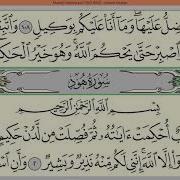 ضِلُّ عَلَيْهَا وَمَآ أَنَا۠ عَلَيْكُم بِوَكِيلٍ ١٠٨
صْبِرْ حَتَّىٰ يَحْكُمَ ٱللَّهُ وَهُوَ خَيْرُ ٱلْحَٰكِ
سُورَةُ هُودٍ
بِسْمِ ٱللَّهِ ٱلرَّحْمَٰنِ ٱلرَّحِيمِ
بٌ أُحْكِمَتْ ءَايَٰتُهُۥ ثُمَّ فُصِّلَتْ مِن لَّدُنْ حَكِيمٍ
وٓا۟ إِلَّا ٱللَّهَ إِنَّنِى لَكُم مِّنْهُ نَذِيرٌ وَبَشِيرٌ ٢ وَأَنِ ٱسْ